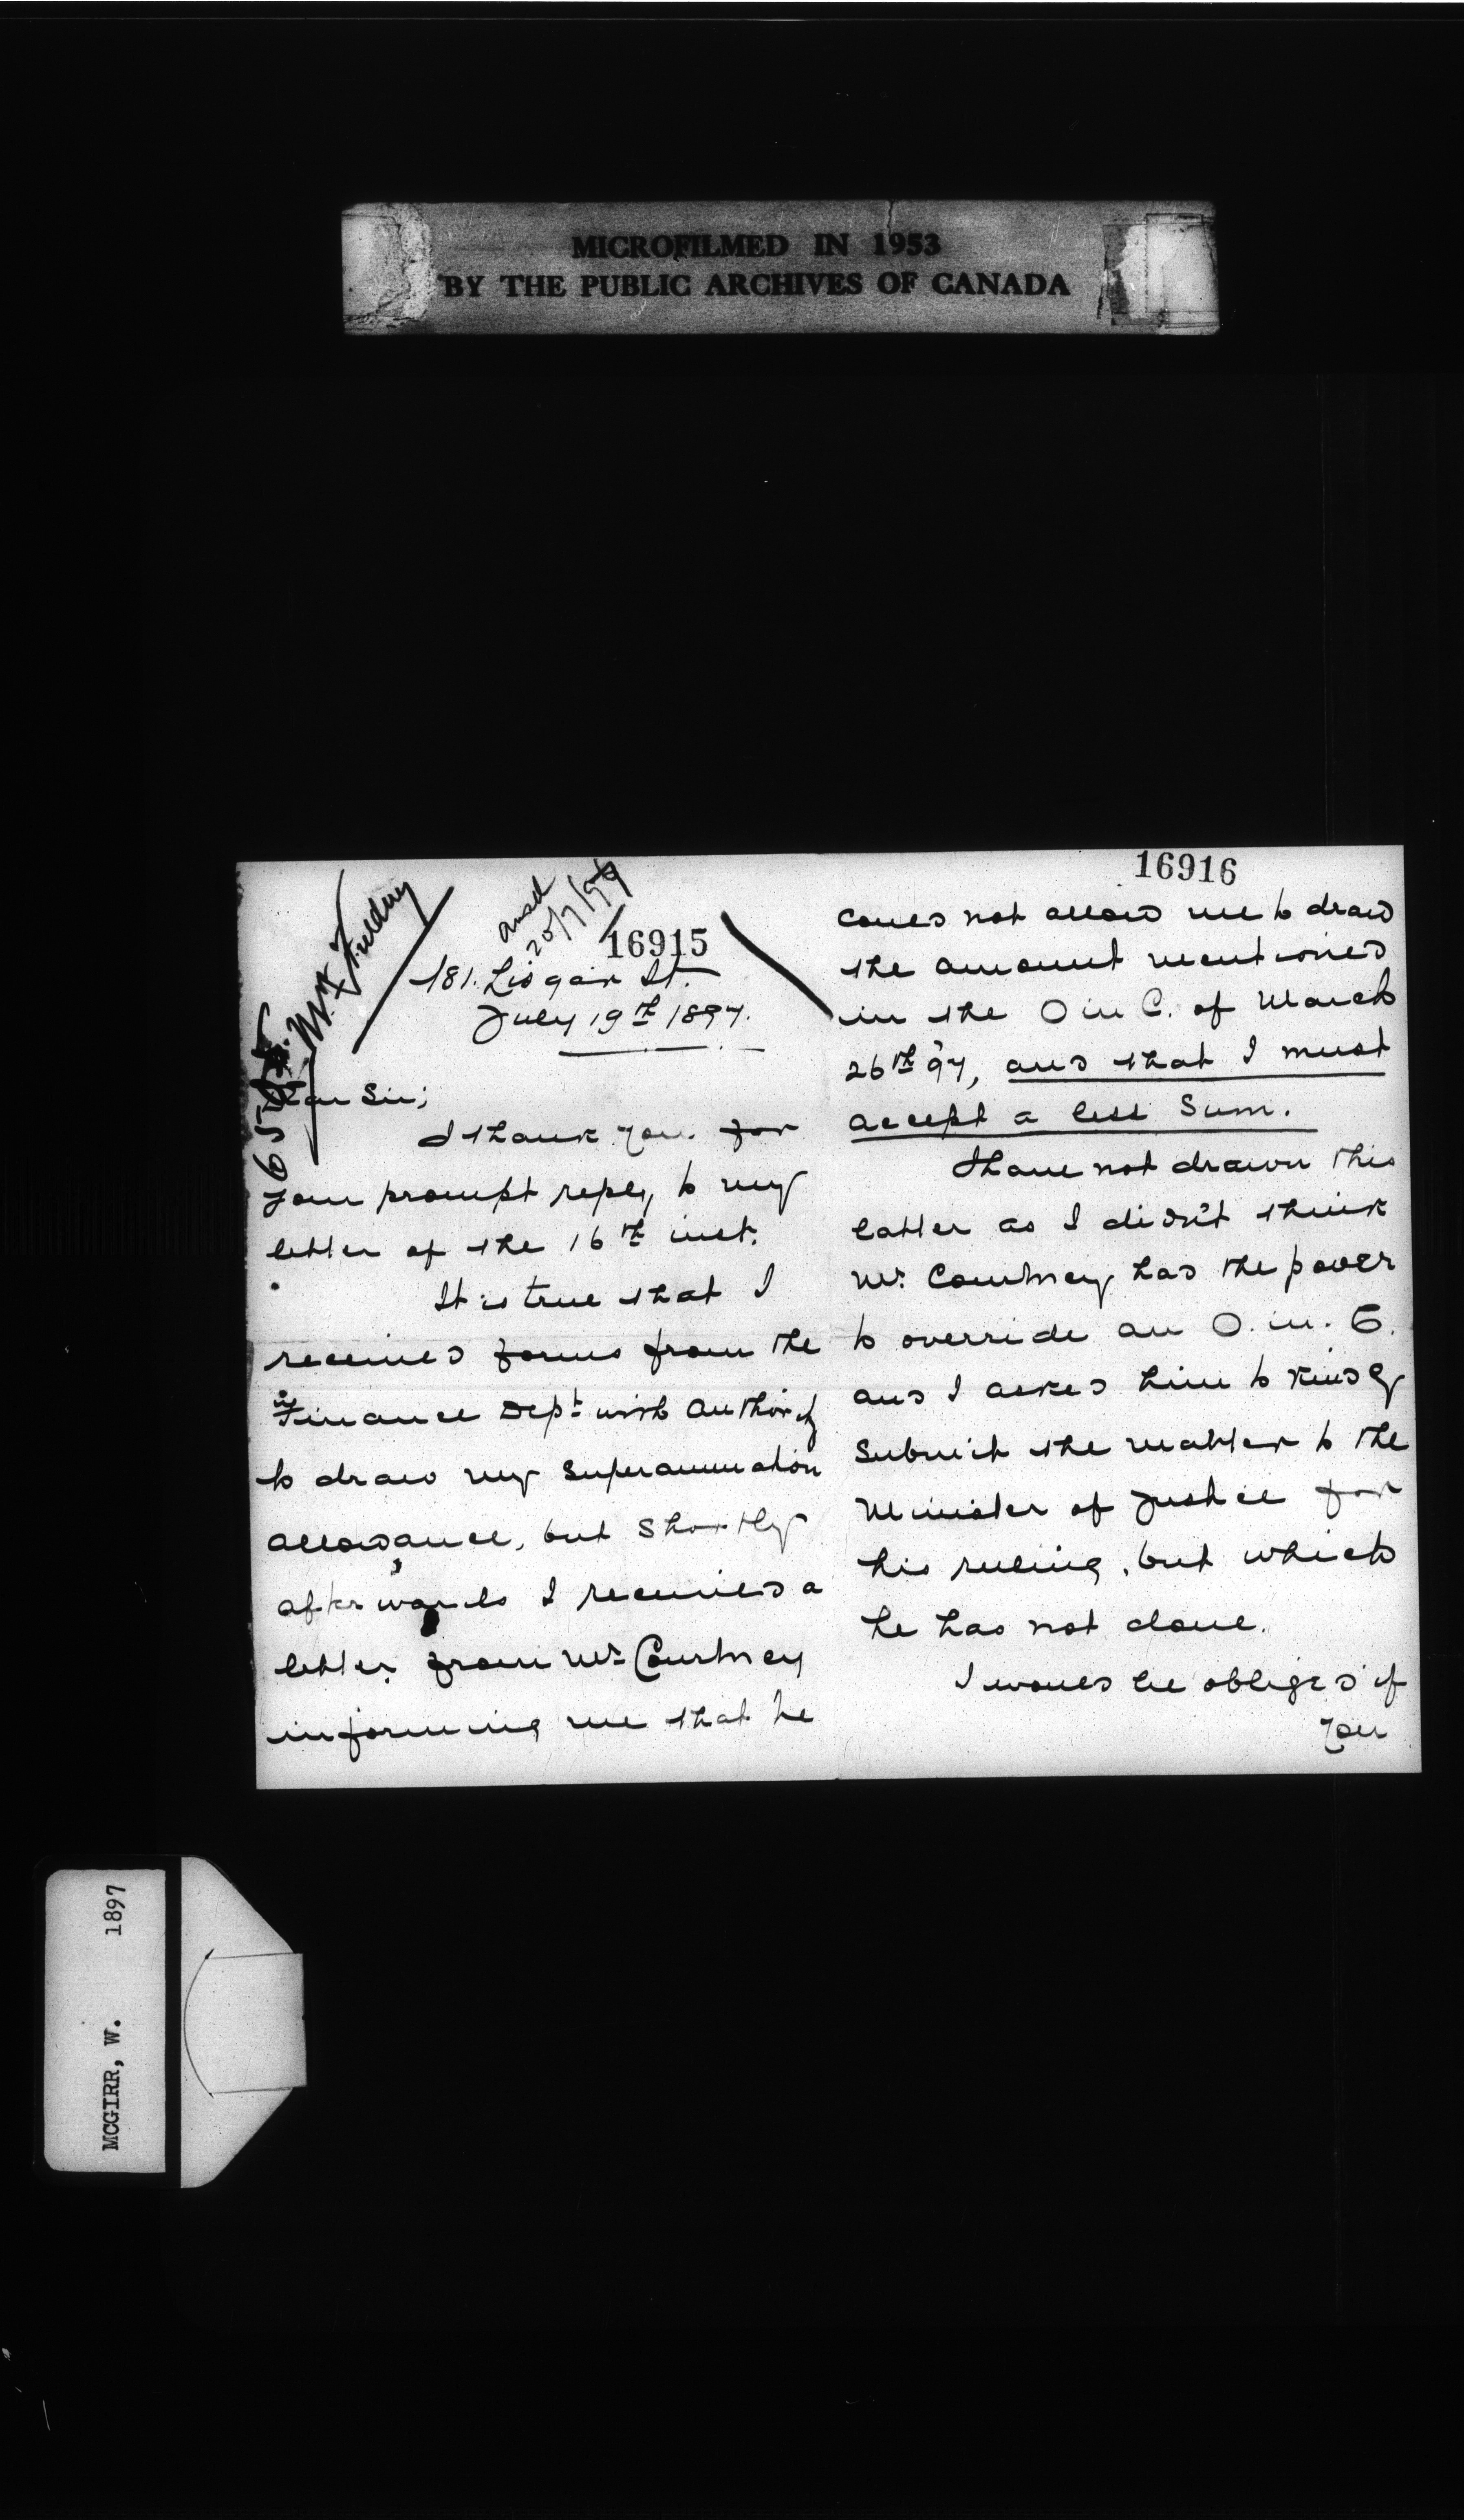 MICROFILMED IN 1953
BY THE PUBLIC ARCHIVES OF CANADA
Mr. Fielding
ansd
20/7/97
16915
181. Lisgar St.
July 19th 1897.
Dear Sir;
I thank you for
your prompt reply to my
letter of the 16th inst.
It is true that I
received forms from the
Finance Dept. with authority
to draw my superannuation
allowance, but shortly
afterwards I received a
letter from Mr. Courtney
informing me that he
16916
could not allow me to draw
the amount mentioned
in the O in C. of March
26th 97, and that I must
accept a less sum.
I have not drawn this
latter as I didn't think
Mr. Courtney has the power
to override an O. in. C.
and I asked him to kindly
submit the matter to the
Minister of Justice for
his ruling, but which
he has not done.
I would be obliged if
you
MCGIRR, W. 1897